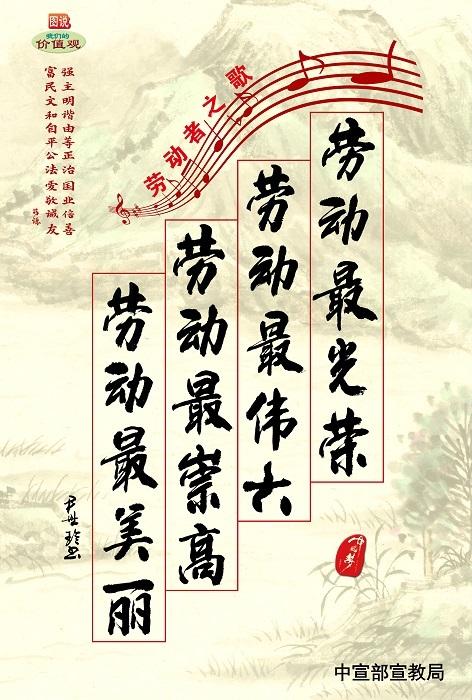 图说
我们的
价值观
富强
民主
文明
和谐
自由
平等
公正
法治
爱国
敬业
诚信
友善
劳动者之歌
劳动最光荣
劳动最伟大
劳动最崇高
劳动最美丽
中国梦
中宣部宣教局